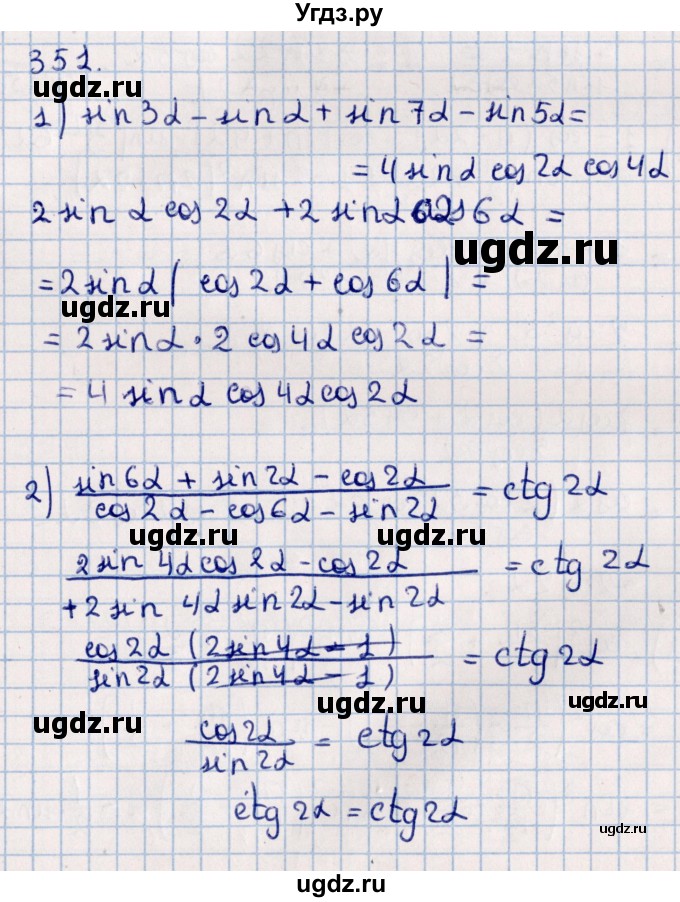 Угдз.ру
351.
ugdz.ru ugdz.ru
1) sin3α - sinα + sin7α - sin5α =
= 4 sinα cos2α cos4α
2 sin α cos 2α + 2 sinα cos6α =
ugdz.ru
= 2 sinα ( cos 2α + cos 6α ) =
ugdz.ru ugdz.ru
= 2 sinα · 2 cos 4α cos 2α =
= 4 sinα cos 4α cos 2α
2) (sin6α + sin2α - cos2α)/(cos2α - cos6α - sin2α) = ctg 2α
ugdz.ru ugdz.ru
(2 sin 4α cos 2α - cos 2α)/(+ 2 sin 4α sin 2α - sin 2α) = ctg 2α
(cos2α (2sin4α - 1))/(sin2α (2sin4α - 1)) = ctg 2α
ugdz.ru ugdz.ru ugdz.ru
cos2α/sin2α = ctg 2α
ctg 2α = ctg 2α
ugdz.ru
ugdz.ru